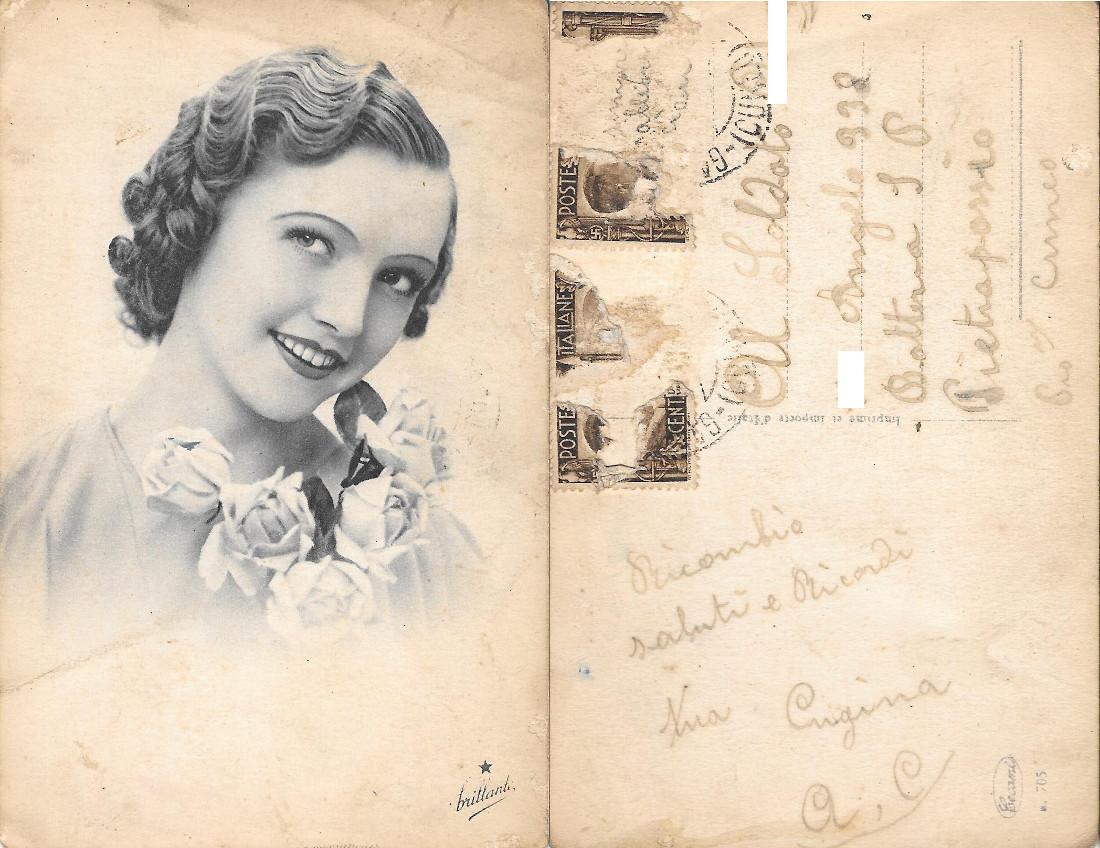 brillante
POSTE
ITALIANE
POSTE
CENT
Al Soldato
Angelo 332
Batteria S P
Pietraporzio
Cuneo
Imprimé et importé d'Italie
Ricambio
saluti e Ricordi
tua Cugina
A, C
N. 705